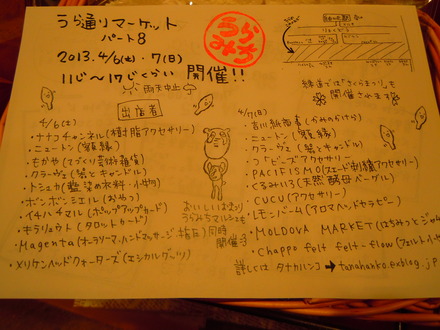 うら通りマーケット
パート8
2013.4/6(土)・7(日)
11じ〜17じくらい 開催!!
雨天中止
うら
みち
緑道では「さくらまつり」も
開催されます
出店者
4/6(土)
・ナナコチャンネル(樹脂アクセサリー)
・ニュートン(額縁)
・もがや(てづくり芸術雑貨)
・クラーヴェ(器とキャンドル)
・トシュカ(藍染の衣料・小物)
・ボンボンミエル(おやつ)
・イチハチマル(ポップアップカード)
・キラリュウト(タロットカード)
・Magenta(オーラソーマ、ハンドマッサージ)
・メリケンヘッドクォーターズ(エシカルグッツ)
おいしいはまりと
うらみちマルシェも
同時
開催
4/7(日)
・吉川紙商事(かみのかけら)
・ニュートン(額縁)
・クラーヴェ(器とキャンドル)
・つ ビーズアクセサリー
・PACIFISMO(スエード刺繍アクセサリー)
・くるみ113(天然酵母ベーグル)
・CUCU(アクセサリー)
・レモンバーム(アロマヘッドセラピー)
・MOLDOVA MARKET(はちみつとジャ
・Chappo felt felt-flow(フェルト小
詳しくは タナカハンコ → tanahanko.exblog.jp